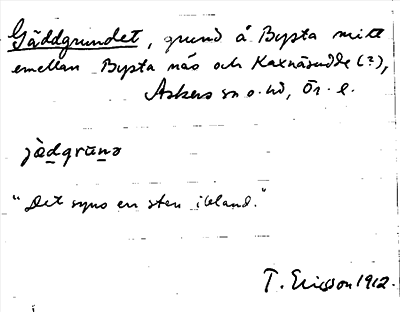 Gäddgrundet, grund å Bysta mitt
emellan Bysta näs och Kaxnäsudde (?),
Askers sn o. hd, Ör. l.
jädgruno
"Det syns en sten ibland."
T. Ericsson 1912.